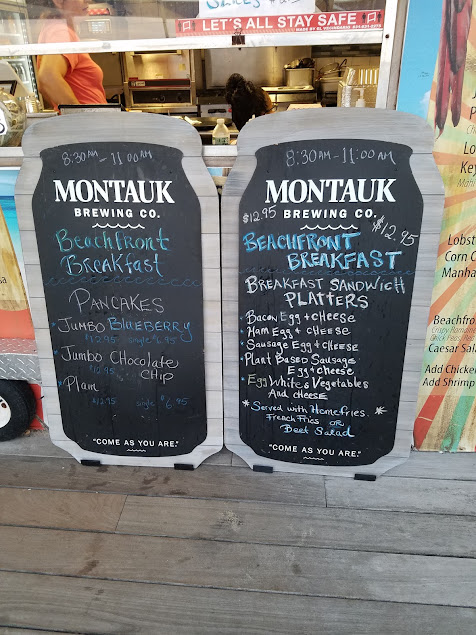 LET'S ALL STAY SAFE
8:30AM - 11:00AM
MONTAUK
BREWING CO.
Beachfront
Breakfast
PANCAKES
Jumbo Blueberry
$12.95 single $6.95
Jumbo Chocolate
$12.95 CHIP
Plain
$12.95 single $6.95
"COME AS YOU ARE."
8:30AM - 11:00AM
MONTAUK
$12.95 BREWING CO. $12.95
BEACHFRONT
BREAKFAST
BREAKFAST SANDWICH
PLATTERS
Bacon Egg + cheese
Ham Egg + cheese
Sausage Egg + cheese
Plant Based Sausage
Egg + cheese
Egg Whites Vegetables
And cheese
* Served with Homefries *
French Fries OR
Beet Salad
"COME AS YOU ARE."
Lobst
Corn C
Manha
Beachfro
Caesar Sal
Add Chicken
Add Shrimp